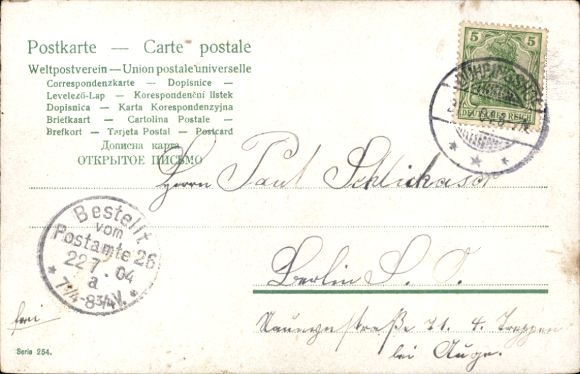 Postkarte — Carte postale
Weltpostverein — Union postale universelle
Correspondenzkarte — Dopisnice —
Levelező-Lap — Korespondenční lístek
Dopisnica — Karta Korespondenzyjna
Briefkaart — Cartolina Postale —
Brefkort — Tarjeta Postal — Postcard
Дописна карта
ОТКРЫТОЕ ПИСЬМО
5 5
DEUTSCHES REICH
Herrn Paul
Bestellt
vom
Postamte 26
22 7. 04
a
7¼-8¾V.
Berlin S. O.
71. 4. Treppen
bei
frei
Serie 254.